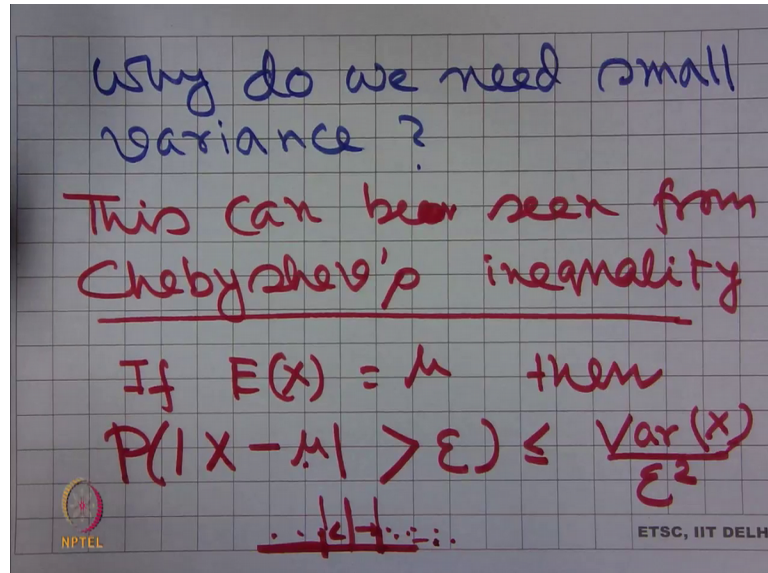 Why do we need small
variance ?
This can be seen from
Chebyshev's inequality
If E(X) = μ then
P(|X - μ| > ε) ≤ Var(X)/ε²
NPTEL
ETSC, IIT DELH